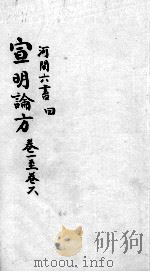 河間六書 四
宣明論方
卷一至卷
研狗
mtoou.info